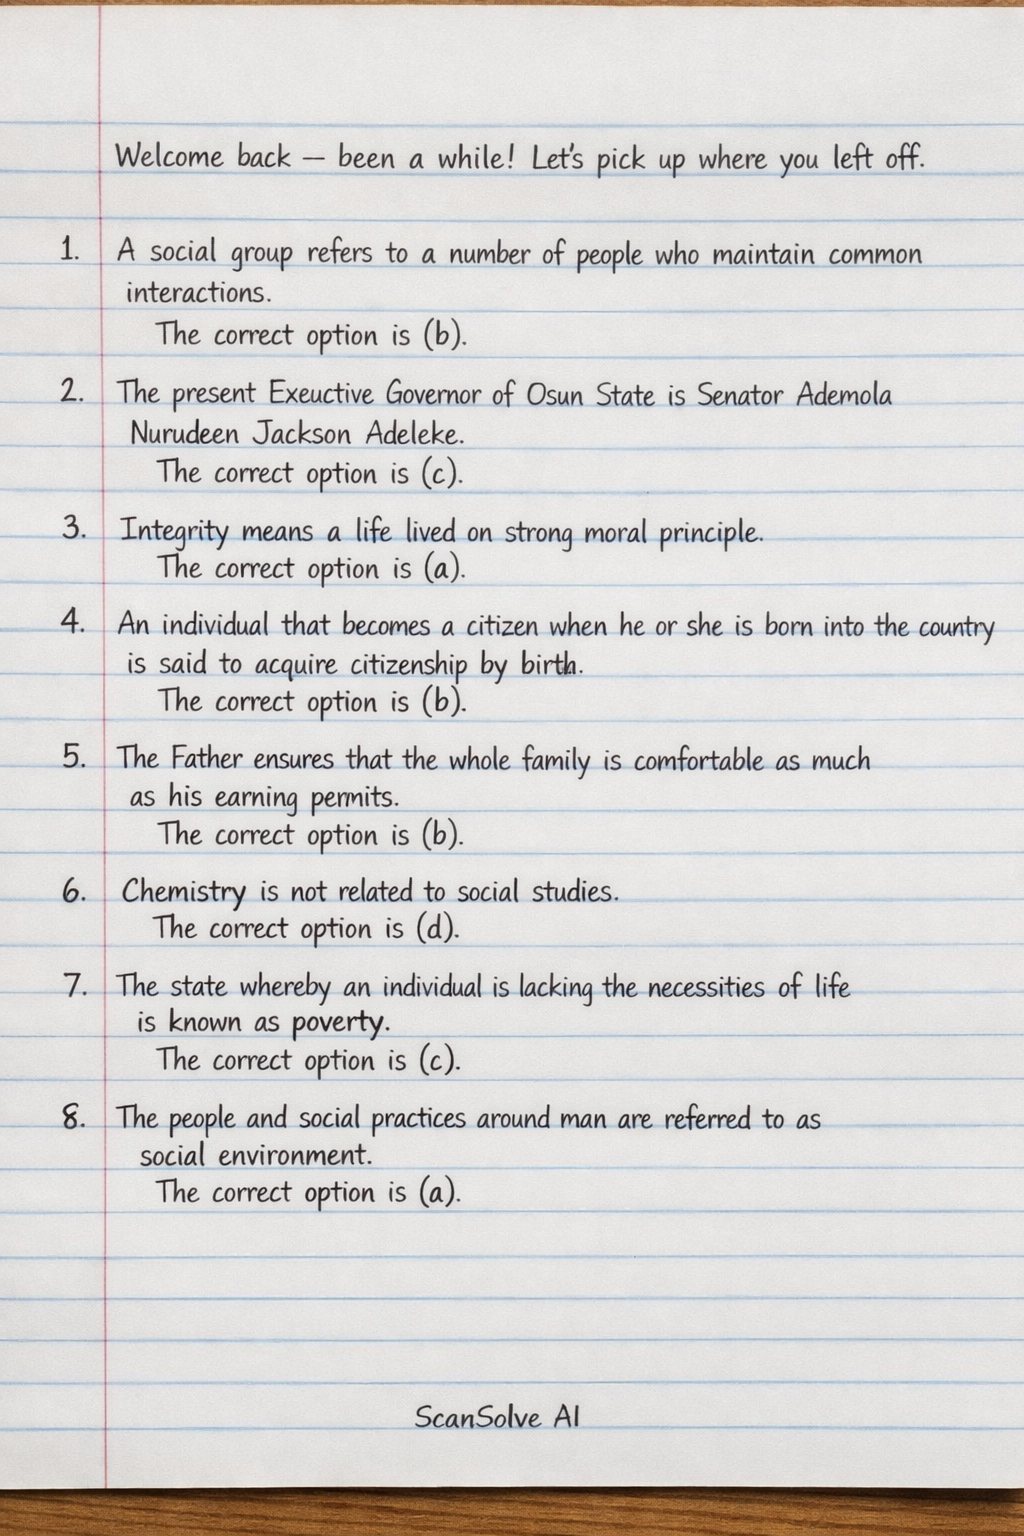 Welcome back — been a while! Let's pick up where you left off.
1. A social group refers to a number of people who maintain common
interactions.
The correct option is (b).
2. The present Exeuctive Governor of Osun State is Senator Ademola
Nurudeen Jackson Adeleke.
The correct option is (c).
3. Integrity means a life lived on strong moral principle.
The correct option is (a).
4. An individual that becomes a citizen when he or she is born into the country
is said to acquire citizenship by birth.
The correct option is (b).
5. The Father ensures that the whole family is comfortable as much
as his earning permits.
The correct option is (b).
6. Chemistry is not related to social studies.
The correct option is (d).
7. The state whereby an individual is lacking the necessities of life
is known as poverty.
The correct option is (c).
8. The people and social practices around man are referred to as
social environment.
The correct option is (a).
ScanSolve AI